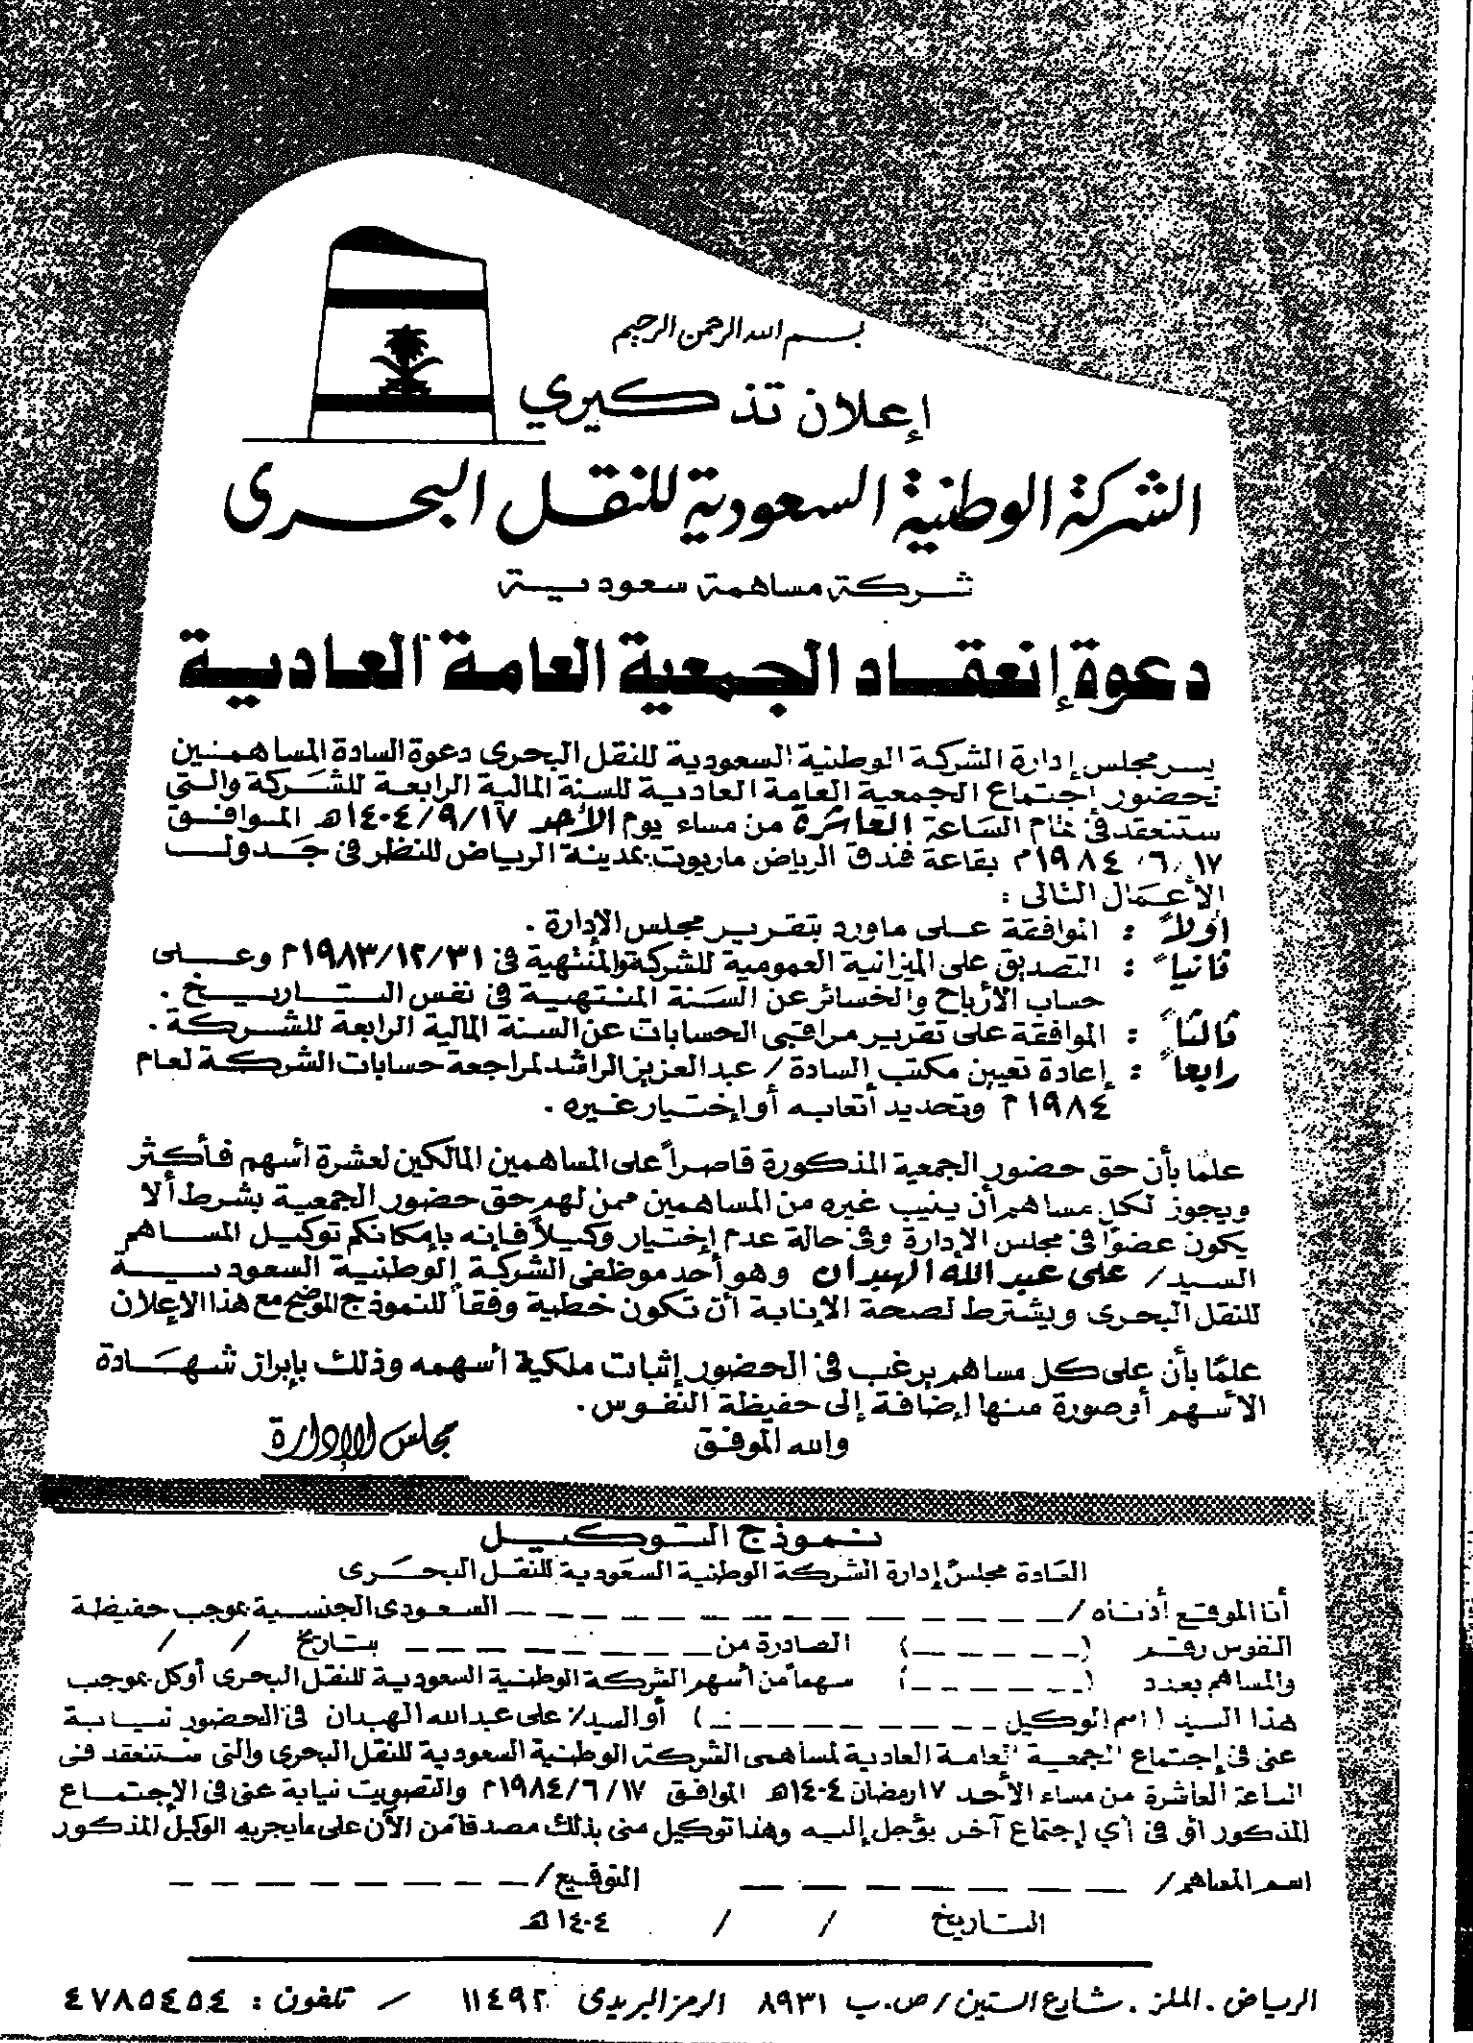 بسم الله الرحمن الرحيم
إعلان تذكيري
الشركة الوطنية السعودية للنقل البحرى
شركة مساهمة سعودية
دعوة إنعقاد الجمعية العامة العادية
يسر مجلس إدارة الشركة الوطنية السعودية للنقل البحرى دعوة السادة المساهمين
لحضور إجتماع الجمعية العامة العادية للسنة المالية الرابعة للشركة والتى
ستنعقد فى تمام الساعة العاشرة من مساء يوم الأحد ١٤٠٤/٩/١٧هـ الموافق
١٩٨٤/٦/١٧م بقاعة فندق الرياض ماريوت بمدينة الرياض للنظر فى جدول
الأعمال التالى :
أولاً : الموافقة على ماورد بتقرير مجلس الإدارة .
ثانياً : التصديق على الميزانية العمومية للشركة والمنتهية فى ١٩٨٣/١٢/٣١م وعلى
حساب الأرباح والخسائر عن السنة المنتهية فى نفس التاريخ .
ثالثاً : الموافقة على تقرير مراقبى الحسابات عن السنة المالية الرابعة للشركة .
رابعاً : إعادة تعيين مكتب السادة / عبد العزيز الراشد لمراجعة حسابات الشركة لعام
١٩٨٤م وتحديد أتعابه أو إختيار غيره .
علما بأن حق حضور الجمعية المذكورة قاصراً على المساهمين المالكين لعشرة أسهم فأكثر
ويجوز لكل مساهم أن ينيب غيره من المساهمين ممن لهم حق حضور الجمعية بشرط ألا
يكون عضوًا فى مجلس الإدارة وفى حالة عدم إختيار وكيلاً فإنه بإمكانكم توكيل المساهم
السيد / على عبد الله الهبدان وهو أحد موظفى الشركة الوطنية السعودية
للنقل البحرى ويشترط لصحة الإنابة أن تكون خطية وفقاً للنموذج الموضح مع هذا الإعلان
علمًا بأن على كل مساهم يرغب فى الحضور إثبات ملكية أسهمه وذلك بإبراز شهادة
الأسهم أو صورة منها إضافة إلى حفيظة النفوس .
والله الموفق
مجلس الإدارة
نموذج التوكيل
السادة مجلس إدارة الشركة الوطنية السعودية للنقل البحرى
أنا الموقع أدناه / السعودى الجنسية بموجب حفيظة
النفوس رقم ( ) الصادرة من بتاريخ / /
والمساهم بعدد ( ) سهماً من أسهم الشركة الوطنية السعودية للنقل البحرى أوكل بموجب
هذا السيد ( اسم الوكيل ) أو السيد / على عبد الله الهبدان فى الحضور نيابة
عنى فى إجتماع الجمعية العامة العادية لمساهمى الشركة الوطنية السعودية للنقل البحرى والتى ستنعقد فى
الساعة العاشرة من مساء الأحد ١٧ رمضان ١٤٠٤هـ الموافق ١٩٨٤/٦/١٧م والتصويت نيابة عنى فى الإجتماع
المذكور أو فى أي إجتماع آخر يؤجل إليه وهذا توكيل منى بذلك مصدقا من الآن على مايجريه الوكيل المذكور
اسم المساهم / التوقيع /
التاريخ / / ١٤٠٤هـ
الرياض . الملز . شارع الستين / ص.ب ٨٩٣١ الرمز البريدى ١١٤٩٢ / تلفون : ٤٧٨٥٤٥٤